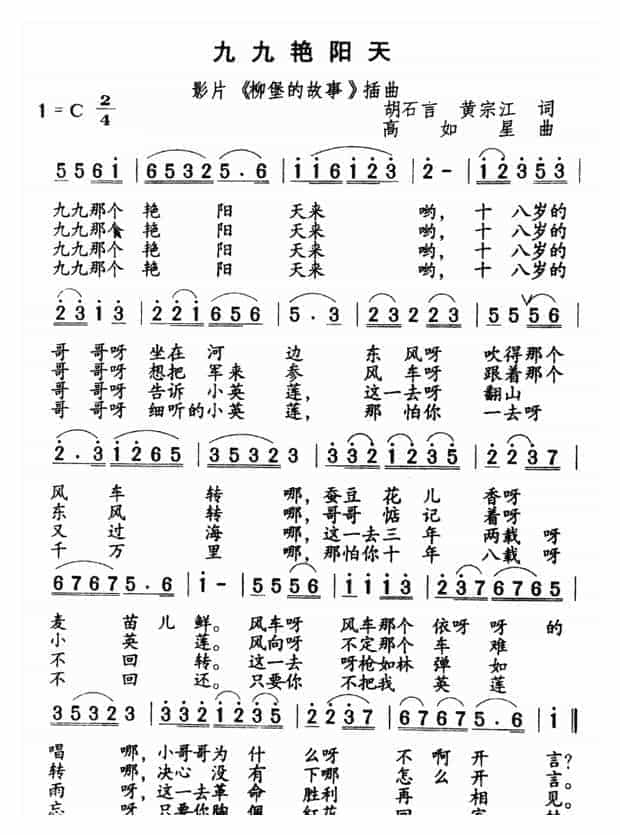 九九艳阳天
影片《柳堡的故事》插曲
1=C 2/4
胡石言 黄宗江 词
高如星 曲
5 5 6 1 | 6 5 3 2 5 . 6 | 1 1 6 1 2 3 | 2 - | 1 2 3 5 3 |
九九那个 艳 阳 天来 哟, 十 八岁的
九九那个 艳 阳 天来 哟, 十 八岁的
九九那个 艳 阳 天来 哟, 十 八岁的
九九那个 艳 阳 天来 哟, 十 八岁的
2 3 1 3 | 2 2 1 6 5 6 | 5 . 3 | 2 3 2 2 3 | 5 5 5 6 |
哥 哥呀 坐在 河 边 东 风呀 吹得那个
哥 哥呀 想把 军来 参 风 车呀 跟着那个
哥 哥呀 告诉 小英 莲, 这一去呀 翻山
哥 哥呀 细听的小英 莲, 那 怕你 一去呀
2 . 3 1 2 6 5 | 3 5 3 2 3 | 3 2 3 1 2 3 5 | 2 2 3 7 |
风 车 转 哪, 蚕豆 花 儿 香呀
东 风 转 哪, 哥哥 惦 记 着呀
又 过 海 哪, 这一去三 年 两载 呀
千 万 里 哪, 那怕你十 年 八载 呀
6 7 6 7 5 . 6 | 1 - | 5 5 5 6 | 1 1 1 3 | 2 3 7 6 7 6 5 |
麦 苗 儿 鲜。 风车呀 风车那个 依呀 呀 的
小 英 莲。 风向呀 不定那个 车 难
不 回 转。 这一去 呀枪如林 弹 如
不 回 还。 只要你 不把我 英 莲
3 5 3 2 3 | 3 2 3 1 2 3 5 | 2 2 3 7 | 6 7 6 7 5 . 6 | 1 ‖
唱 哪, 小哥哥为 什 么呀 不 啊 开 言?
转 哪, 决心 没 有 下哪 怎 么 开 言。
雨 呀, 这一去革 命 胜利 再 相 见。
忘 呀, 只要你胸 佩 红花 回